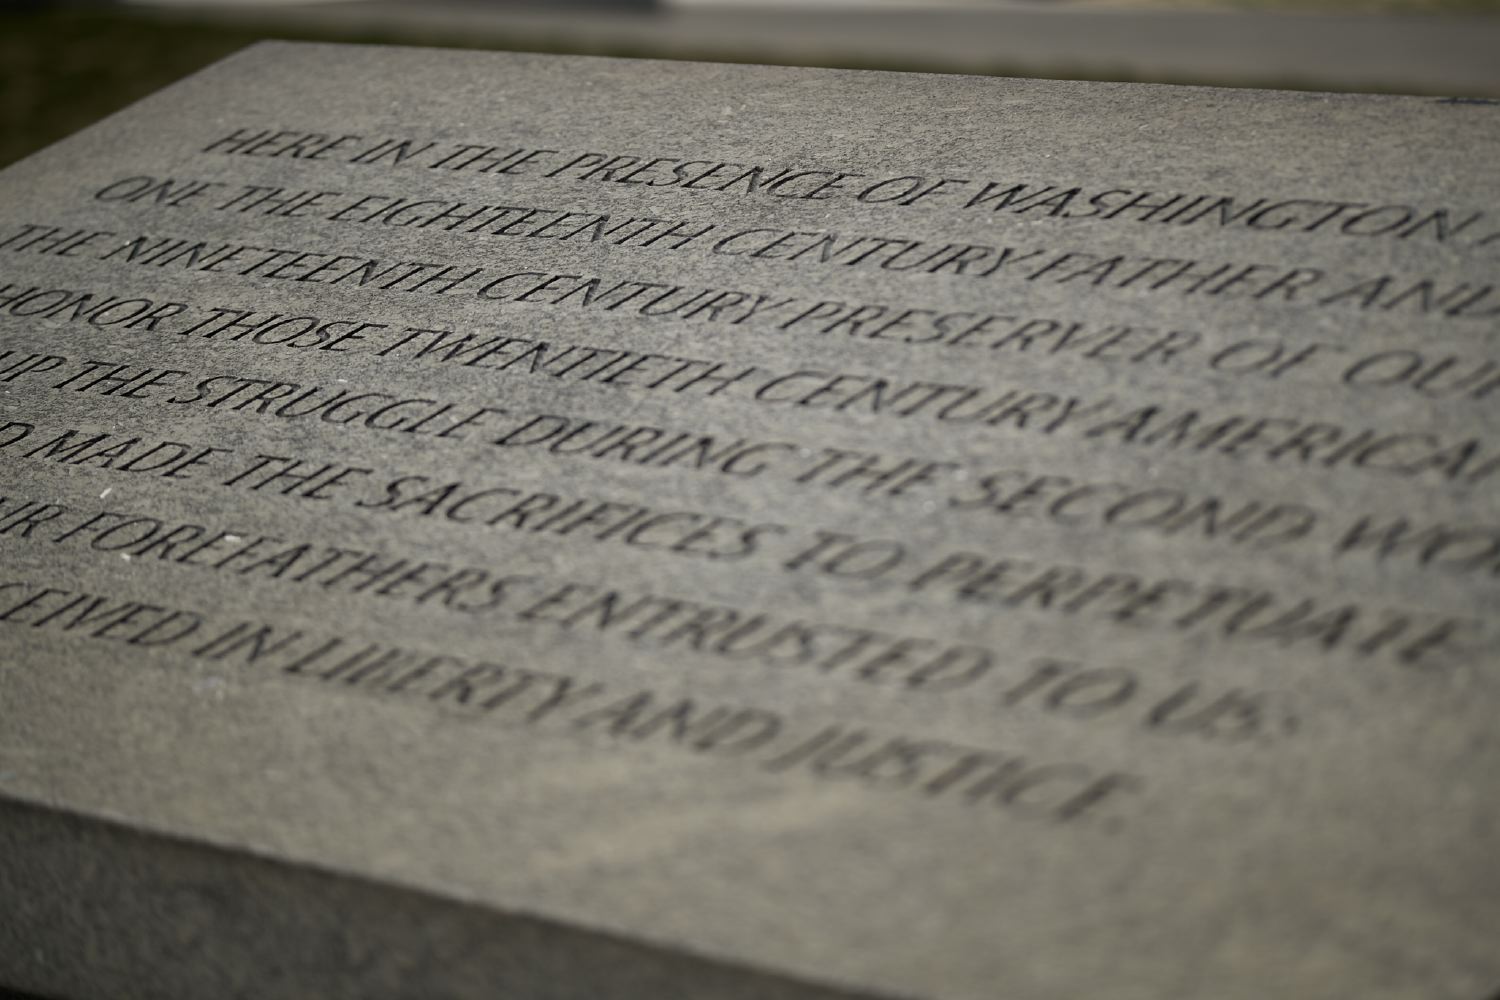 HERE IN THE PRESENCE OF WASHINGTON
ONE THE EIGHTEENTH CENTURY FATHER AND
THE NINETEENTH CENTURY PRESERVER OF OUR
HONOR THOSE TWENTIETH CENTURY AMERICA
UP THE STRUGGLE DURING THE SECOND WO
D MADE THE SACRIFICES TO PERPETUATE
UR FOREFATHERS ENTRUSTED TO US:
CEIVED IN LIBERTY AND JUSTICE.